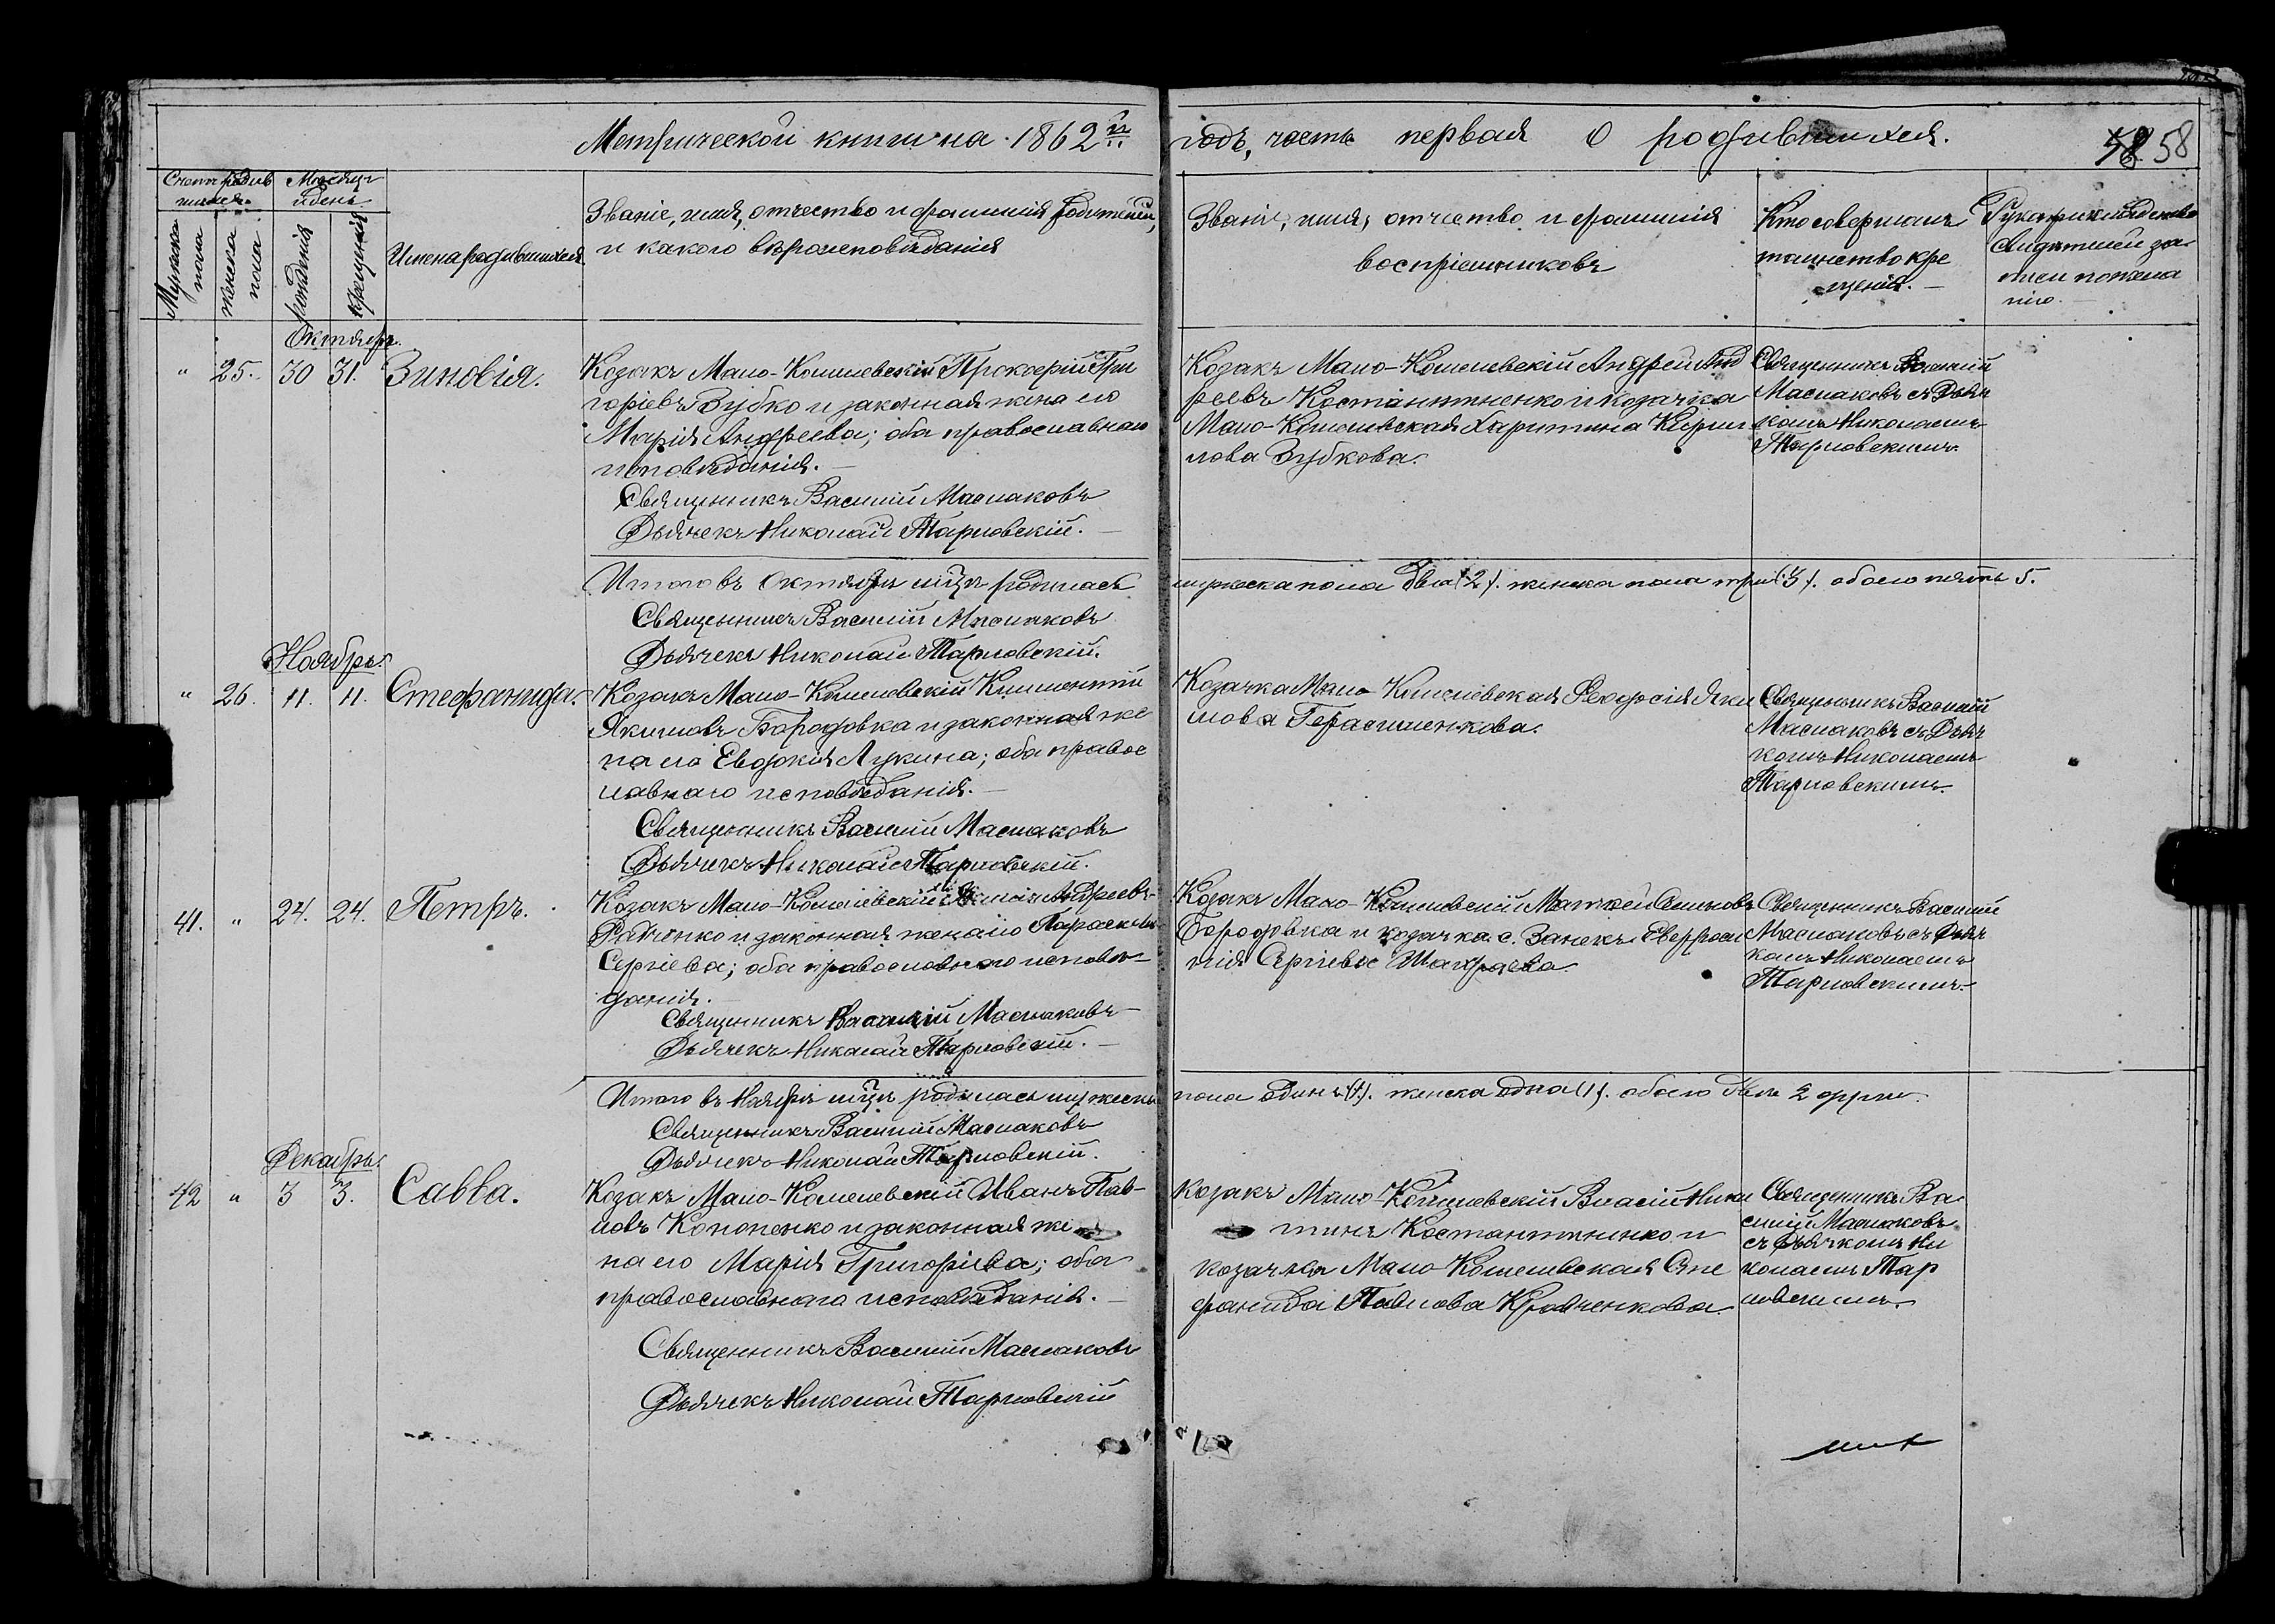 Метрической книги на 1862й годъ, часть первая о родившихся.
58 58
Счетъ родив
шихся.
Мѣсяцъ
и день
Мужеска
пола
женска
пола
рожденія
крещенія
Имена родившихся.
Званіе, имя, отчество и фамилія родителей,
и какого вѣроисповѣданія
Званіе, имя, отчество и фамилія
воспріемниковъ
Кто совершалъ
таинство кре
щенія.
Рукоприкладство
свидѣтелей за
писи по жела
нію.
Октябрь.
" 25. 30 31. Зиновія.
Козакъ Мало-Кошелевскій Прокофій Гри
горіевъ Зубко и законная жена его
Марія Андреева; оба православнаго
исповѣданія.
Священникъ Василій Маслаковъ
Дьячекъ Николай Тарновскій.
Козакъ Мало-Кошелевскій Андрей Анд
реевъ Костантиненко и козачка
Мало-Кошелевская Харитина Кирил
лова Зубкова.
Священникъ Василій
Маслаковъ съ Дьяч
комъ Николаемъ
Тарновскимъ.
Итого въ Октябрѣ мѣцѣ родилась мужеска пола два (2). женска пола три (3). обоего пять 5.
Священникъ Василій Маслаковъ
Дьячекъ Николай Тарновскій.
Ноябрь.
" 26. 11. 11. Стефанида.
Козакъ Мало-Кошелевскій Климентій
Якимовъ Бородовка и законная же
на его Евдокія Лукина; оба правос
лавнаго исповѣданія.
Священникъ Василій Маслаковъ
Дьячекъ Николай Тарновскій.
Козачка Мало-Кошелевская Феодосія Яки
мова Герасименкова.
Священникъ Василій
Маслаковъ съ Дьяч
комъ Николаемъ
Тарновскимъ.
41. " 24. 24. Петръ.
Козакъ Мало-Кошелевскій Андреевъ
Радченко и законная жена его Параскева
Сергіева; оба православнаго исповѣ-
данія.
Священникъ Василій Маслаковъ
Дьячекъ Николай Тарновскій.
Козакъ Мало-Кошелевскій Матфей Семеновъ
Бородовка и козачка с. Занекъ Евфроси
нія Сергіева
Священникъ Василій
Маслаковъ съ Дьяч
комъ Николаемъ
Тарновскимъ.
Итого въ Ноябрѣ мѣцѣ родилась мужеска пола одинъ (1). женска одна (1). обоего два 2
Священникъ Василій Маслаковъ
Дьячекъ Николай Тарновскій.
Декабрь.
42 " 3 3. Савва.
Козакъ Мало-Кошелевскій Иванъ Пав-
ловъ Кононенко и законная же
на его Марія Григоріева; оба
православнаго исповѣданія.
Священникъ Василій Маслаковъ
Дьячекъ Николай Тарновскій
Козакъ Мало-Кошелевскій Власій Ники
тинъ Костантиненко и
козачка Мало-Кошелевская Сте
фанида Павлова Кравченкова.
Священникъ Ва
силій Маслаковъ
съ Дьячкомъ Ни
колаемъ Тар
новскимъ.